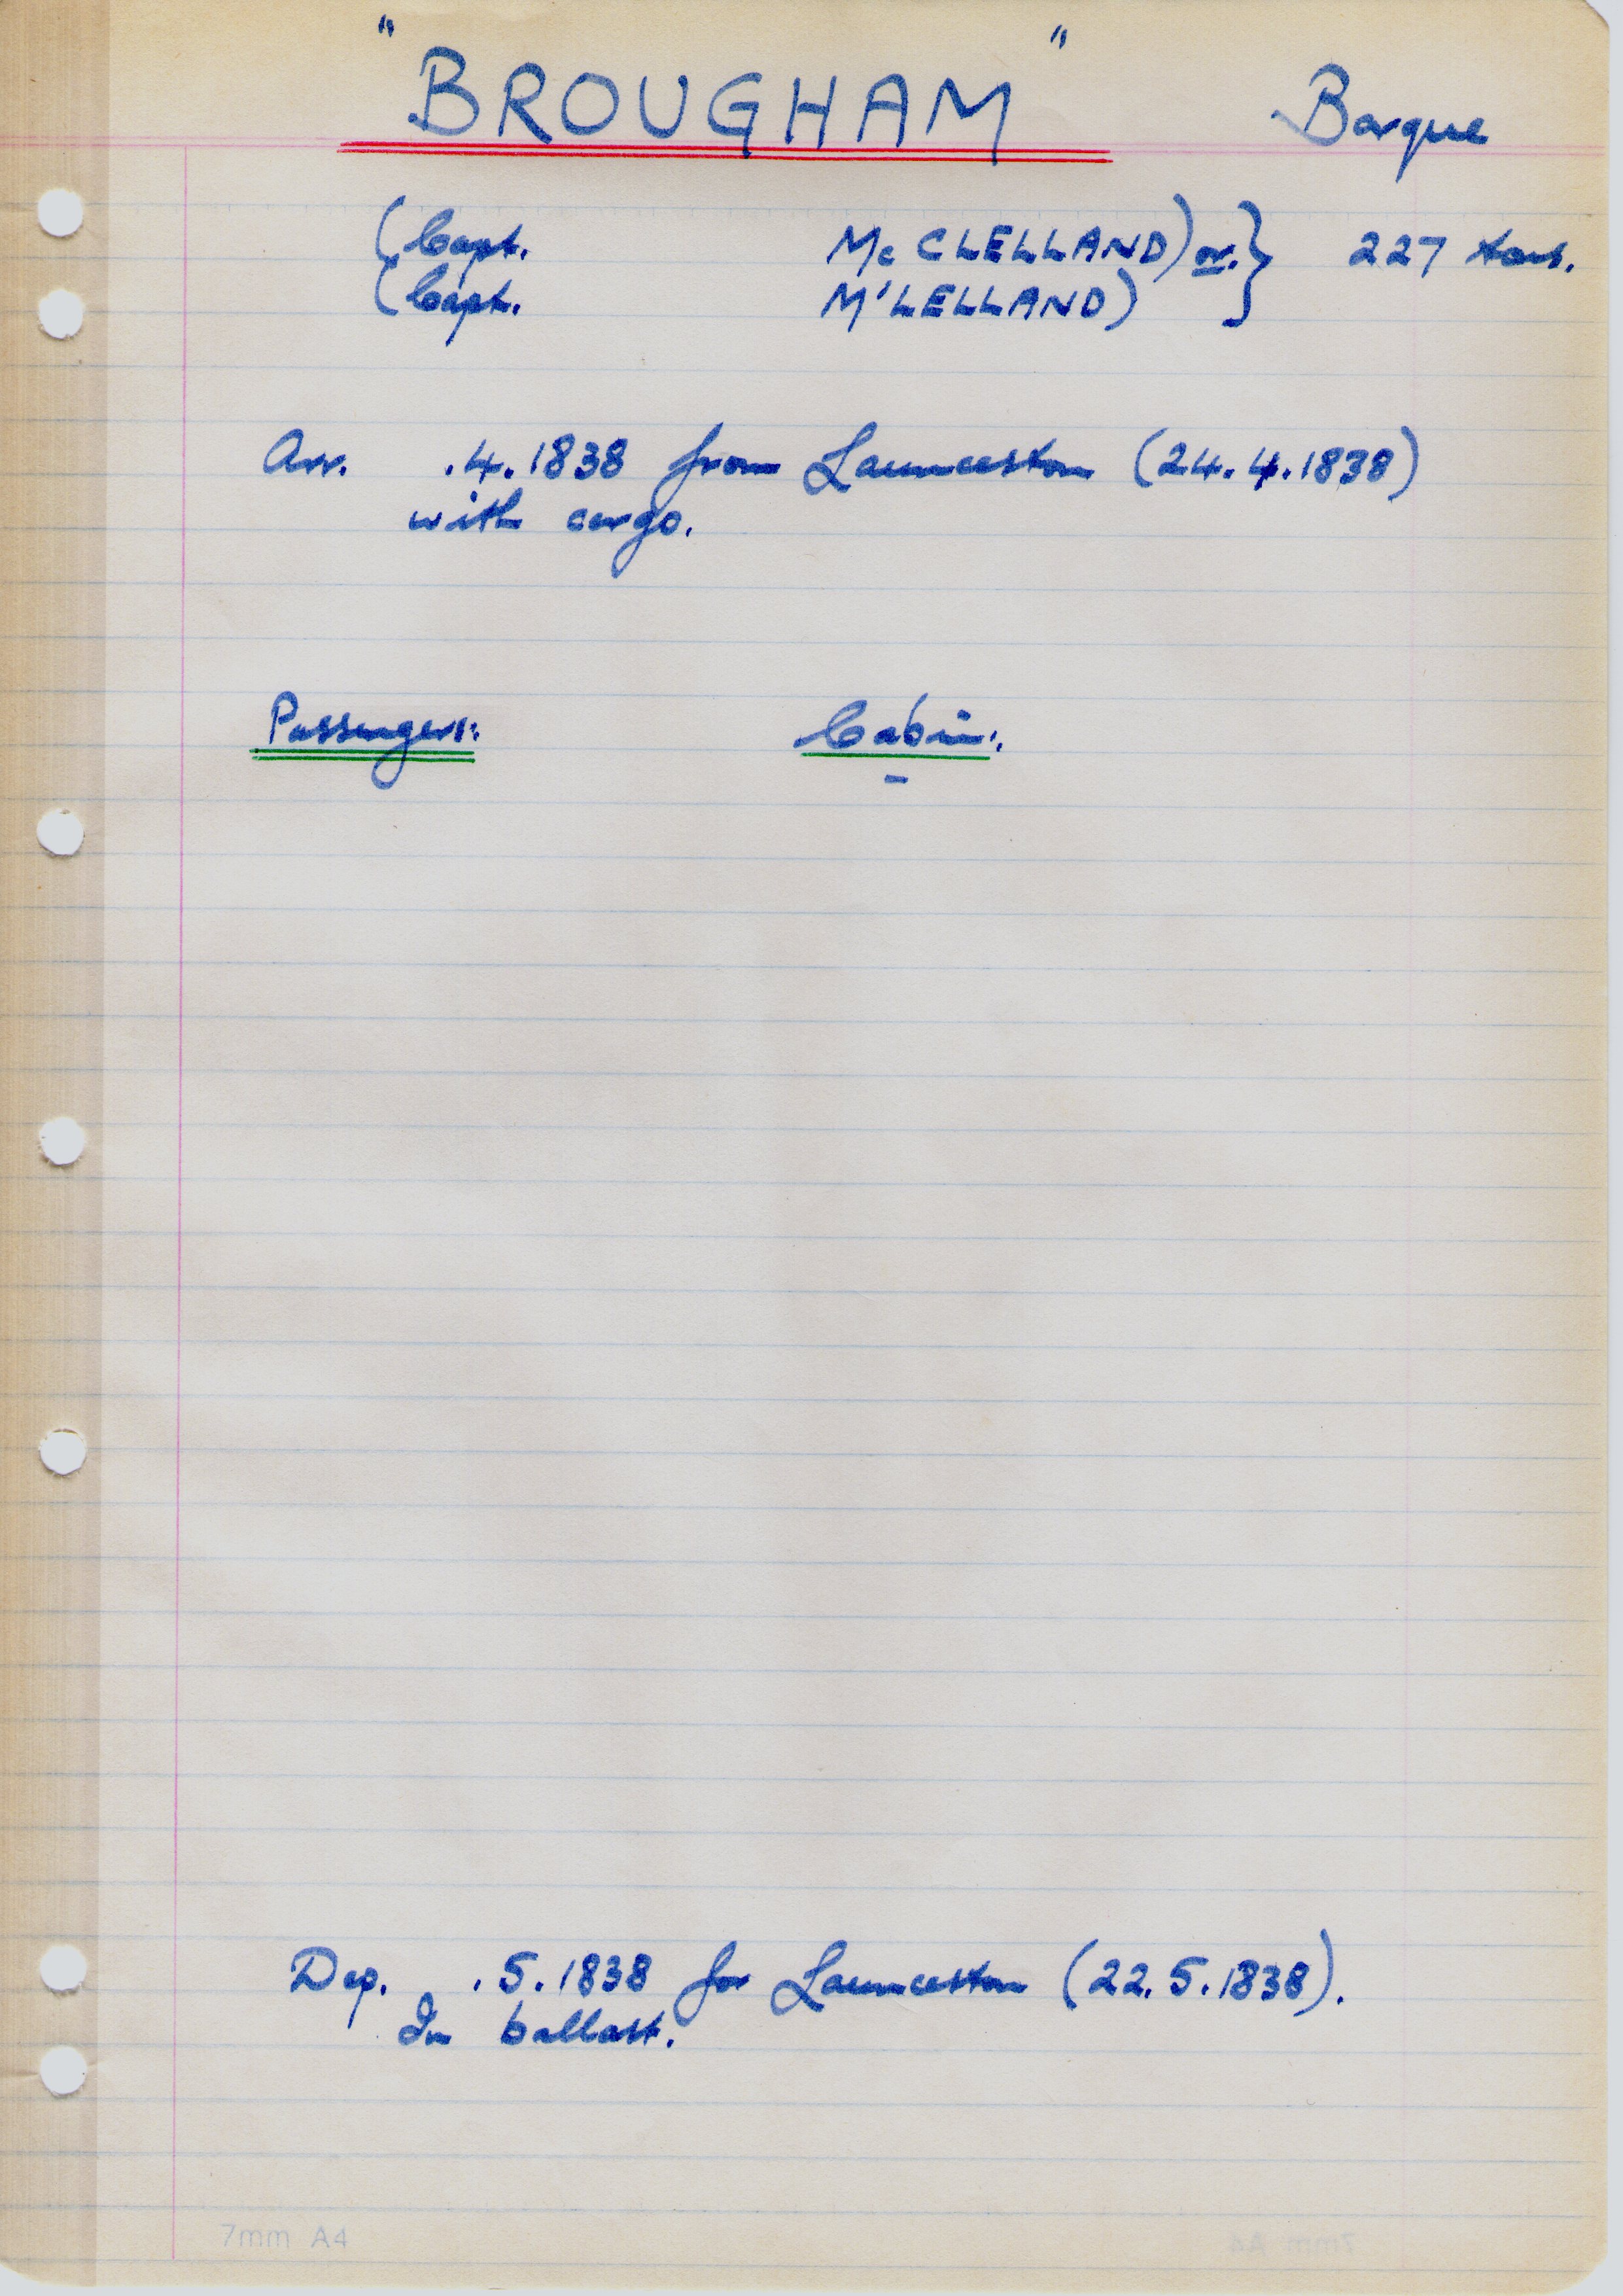 "BROUGHAM" Barque
(Capt. McCLELLAND) or. } 227 tons.
(Capt. M'LELLAND)
Arr. .4.1838 from Launceston (24.4.1838)
with cargo.
Passengers: Cabin:
-
Dep. .5.1838 for Launceston (22.5.1838).
In ballast.
7mm A4